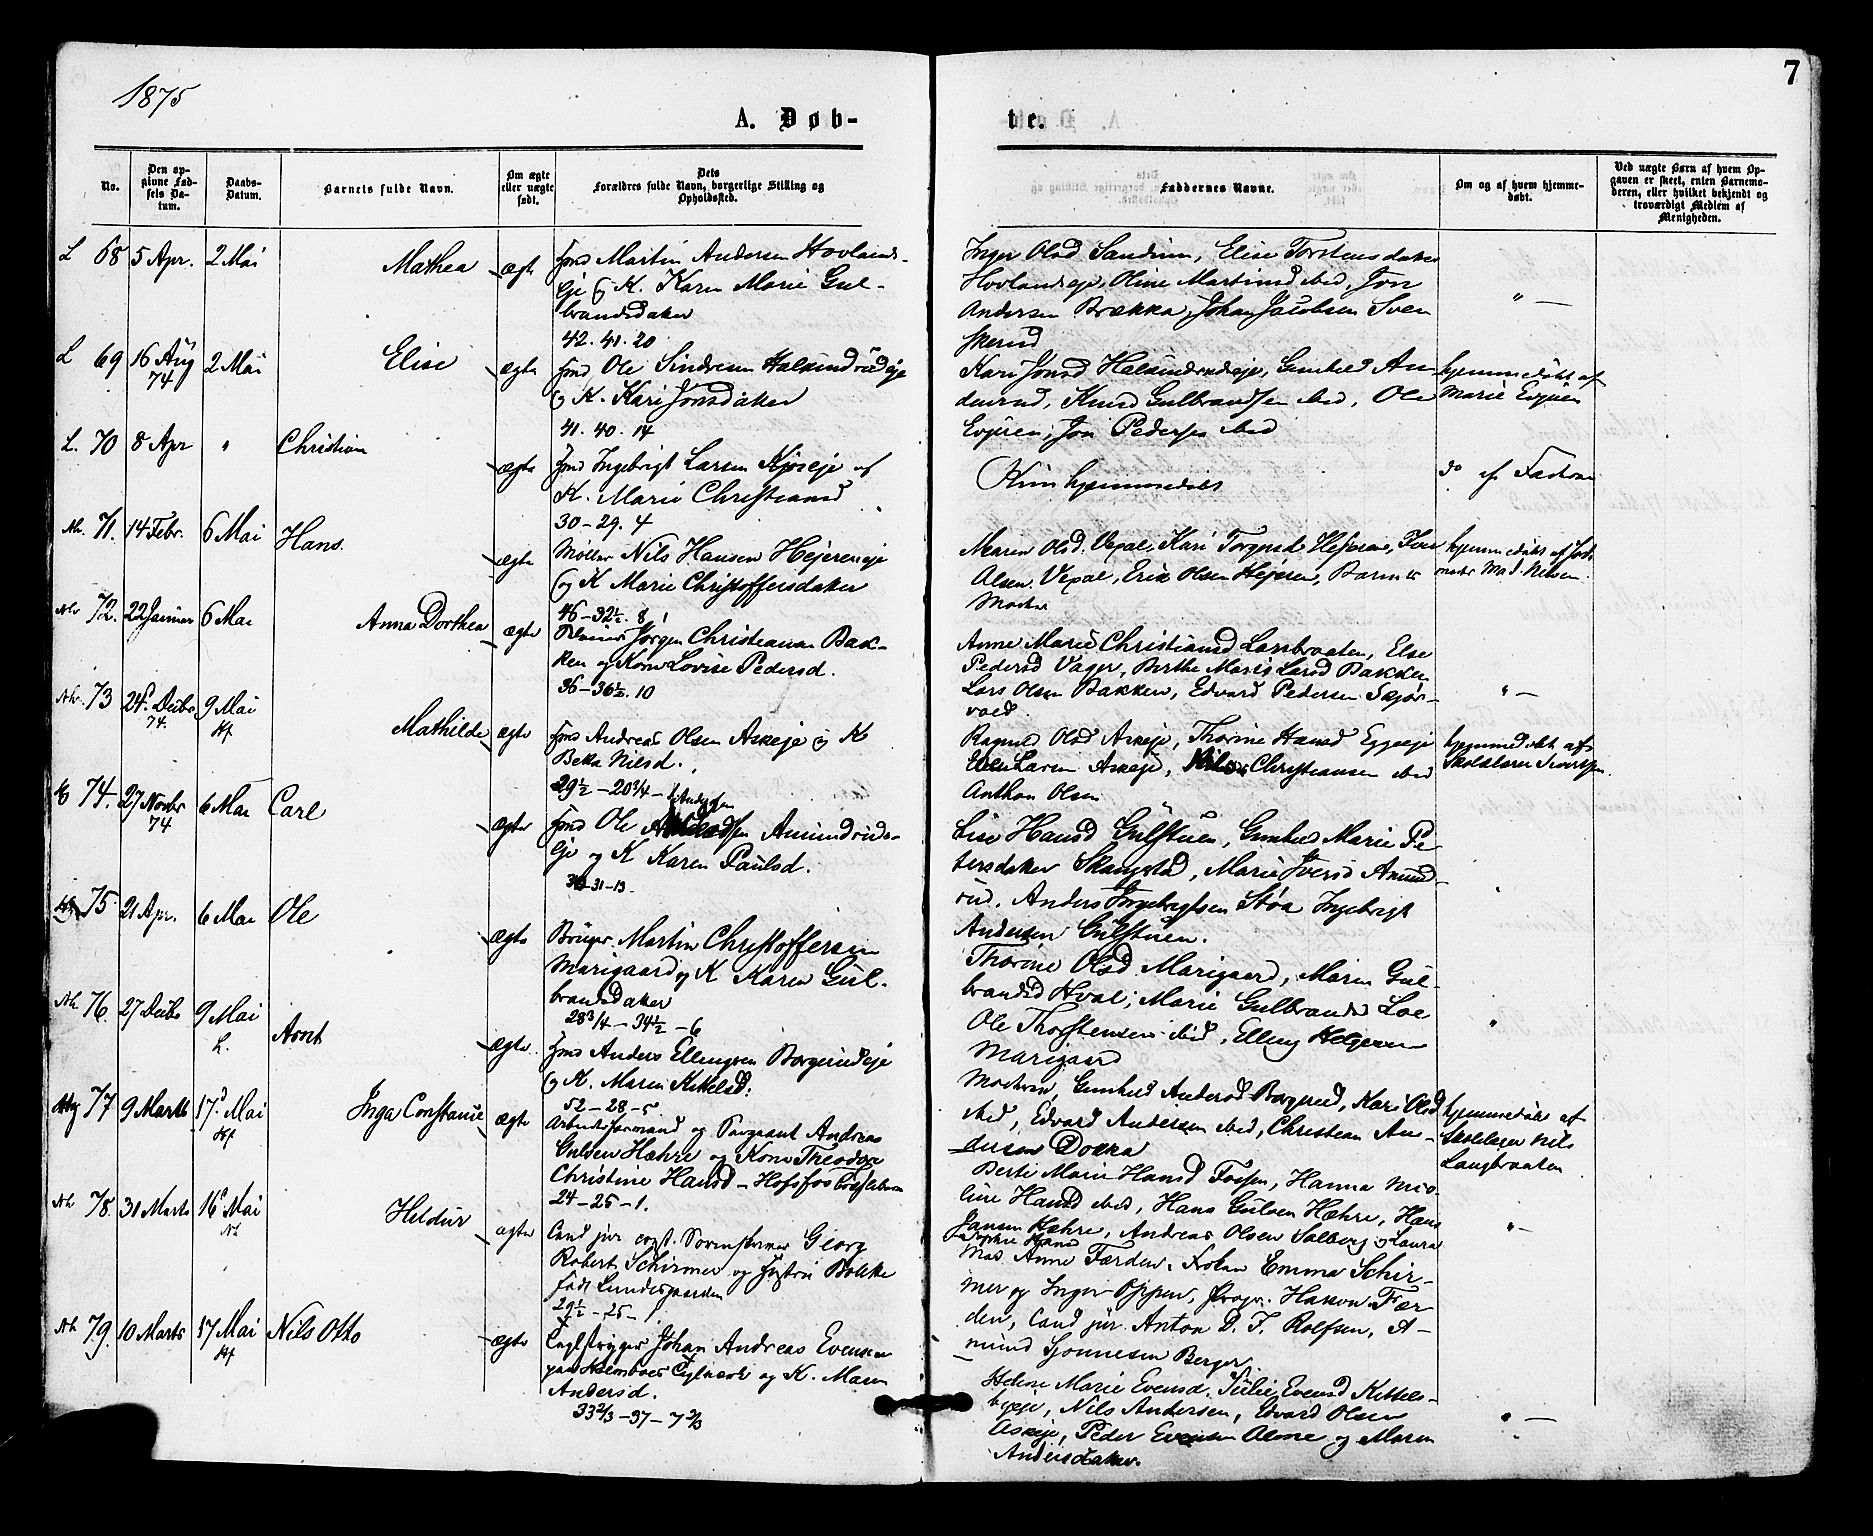 1875
7
A. Døb-
te.
No.
Den op-
givne Fød-
sels Da-
tum.
Daabs-
Datum.
Barnets fulde Navn.
Om ægte
eller uægte
født.
Dets
Forældres fulde Navn, borgerlige Stilling og
Opholdssted.
Faddernes Navne.
Om og af hvem hjemme-
døbt.
Ved uægte Børn af hvem Op-
gaven er skeet, enten Barnemo-
deren, eller hvilket bekjendt og
troværdigt Medlem af
Menigheden.
L 68 5 Apr. 2 Mai Mathea ægte
Martin Andersen Hovlands-
eje og K. Karen Marie Gul-
brandsdatter
42. 41. 20
Inger Olsd Sandum, Elise Torstensdatter
Hovlandseje, Oline Martinsd ibid, Jon
Andersen Brække, Johan Jacobsen Sven
skerud
" —
L 69 16 Aug 74 2 Mai Elise ægte
Ole Sindresen Halsindrudeje
og K. Kari Jonsdatter
41. 40. 14
Kari Jonsd Halsindrudeje, Gunhild An
derud, Knud Gulbrandsen ibid, Ole
Evjuen, Jon Pedersen ibid
hjemmedøbt af
Marie Evjuen
L. 70 8 Apr " Christian ægte
Ingebrigt Larsen
K. Marie Christiansd
30 - 29. 4
Kun hjemmedøbt
do af
Nh. 71. 14 Febr. 6 Mai Hans. ægte
Møller Nils Hansen Hejereneje
og K Marie Christoffersdatter
46 - 32½. 8
Maren Olsd. Vexal, Kari
Olsen Vexal, Erik Olsen Hejeren, Barnets
Moder
hjemmedøbt af Jord-
moder Mad. Nilsen.
Nh 72. 22 Januar 6 Mai Anna Dorthea ægte
Jørgen Christiansen Bak-
ken og Kone Lovise Pedersd.
36 - 36½. 10
Anne Marie Christiansd Lansbraaten, Else
Pedersd Vager, Berthe Marie Larsd Bakken
Lars Olsen Bakken, Edvard Pedersen
" —
Nh. 73 24 Decbr 74. 9 Mai Hf Mathilde ægte
Andreas Olsen Askeje og K
Beka Nilsd.
29½ - 20¾ -
Ragnild Olsd Askeje, Thorine Hansd Eggeeje
Larsen Askeje, Christiansen ibid
Anthon Olsen
hjemmedøbt af
Skolelærer
74. 27 Novbr 74 6 Mai Carl ægte
Ole Andersen Amundruds-
eje og K Karen Paulsd.
31 - 13
Lise Hansd Gulstuen, Gunhild Marie Pe
tersdatter Skangstad, Marie Iversd Amund-
rud. Anders Ingebrigtsen Støa Ingebrigt
Andersen Gulstuen.
75. 21 Apr. 6 Mai Ole ægte
Bruger Martin Christoffersen
Marigaard og K Karen Gul-
brandsdatter
28¾ - 34½ - 6
Thorine Olsd Marigaard, Maren Gul-
brandsd Hval, Marie Gulbrandsd Loe
Ole Thorstensen ibid, Elling Helgesen
Marigaard
Nh. 76. 27 Decbr 9 Mai L. Arnt ægte
Anders Ellingsen Borgerudeje
og K. Maren
52 - 28 - 5
Moderen, Gunhild Andersd Borgerud, Kari Olsd
ibid, Edvard Andersen ibid, Christian An-
dersen Dokka
hjemmedøbt af
Skolelærer Nils
Langbraaten
77 9 Marts 17. Mai Hf Inga Constance ægte
Arbeidsformand og Sergeant Andreas
Gulsen Hæhre og Kone Theodora
Christine Hansd - Hofsfos
24 - 25 - 1.
Berte Marie Hansd Fossen, Hanna
line Hansd ibid, Hans Gulsen Hæhre, Hans
Jansen Hæhre, Andreas Olsen Solberg og Laura
" —
Nh 78. 31 Marts 16 Mai Nh Heldur ægte
Cand jur Georg
Robert Schirmer og Hustru Bolette
født Lundesgaarden
29½ - 25 - 1
Mad Anne Færden, Frøken Emma Schir-
mer og Inger Oppen, Hakon Fær
den, Cand jur Anton D. F. Rolfsen, A-
mund Gjønnesen Berger
Nh 79. 10 Marts 17 Mai Hf Nils Otto ægte
Teglstryger Johan Andreas Evensen
Teglværk og K. Maren
Andersd.
33⅔ - 37 - 7⅔
Helene Marie Evensd. Julie Evensd Kittels-
bygge, Nils Andersen, Edvard Olsen
Askeje, Peder Evensen Alme og Maren
Andersdatter.
" —